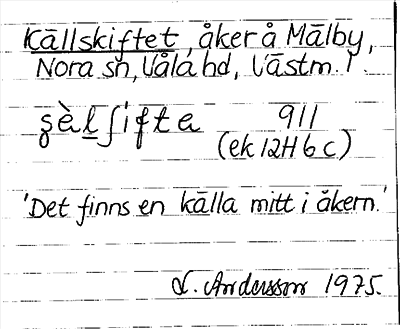 Källskiftet, åker å Mälby,
Nora sn, Våla hd, Västm. l.
şὲl̲ʃifta 911
(ek 12H 6c)
'Det finns en källa mitt i åkern.'
L. Andersson 1975.